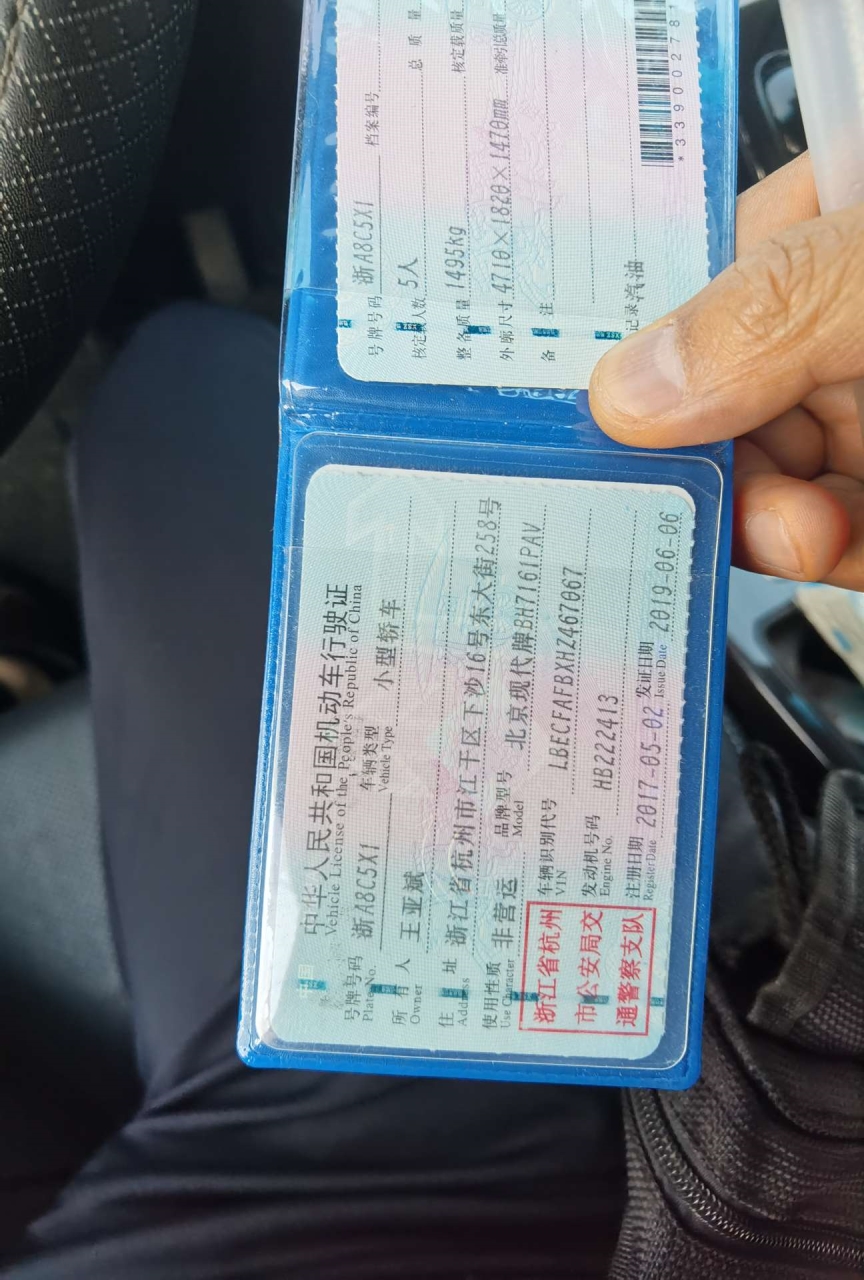 中华人民共和国机动车行驶证
Vehicle License of the People's Republic of China
号牌号码 浙A8C5X1 车辆类型 小型轿车
Plate No. Vehicle Type
所有人 王亚斌
Owner
住址 浙江省杭州市江干区下沙16号东大街258号
Address
使用性质 非营运 品牌型号 北京现代牌BH7161PAV
Use Character Model
浙江省杭州
市公安局交
通警察支队
车辆识别代号 LBECFAFBXHZ467067
VIN
发动机号码 HB222413
Engine No.
注册日期 2017-05-02 发证日期 2019-06-06
Register Date Issue Date
号牌号码 浙A8C5X1 档案编号
核定载人数 5人 总质量
整备质量 1495kg 核定载质量
外廓尺寸 4710×1820×1470mm 准牵引总质量
备注
记录 汽油
*33900278